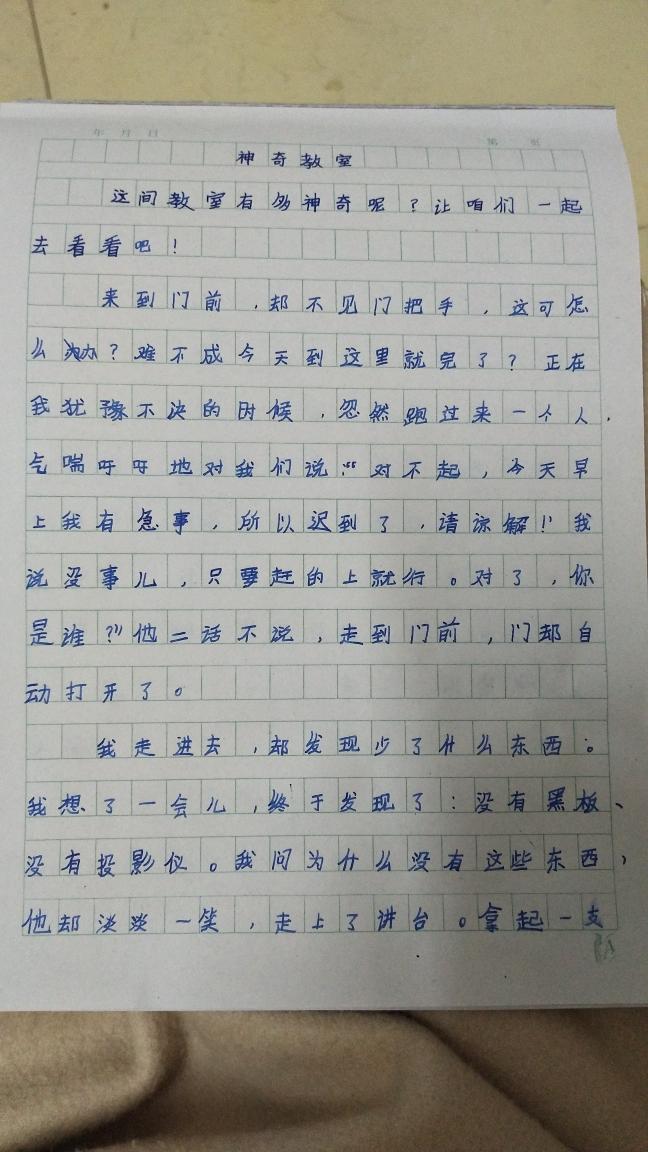 年 月 日 第 页
神奇教室
这间教室有多神奇呢？让咱们一起
去看看吧！
来到门前，却不见门把手，这可怎
么办？难不成今天到这里就完了？正在
我犹豫不决的时候，忽然跑过来一个人，
气喘吁吁地对我们说：“对不起，今天早
上我有急事，所以迟到了，请谅解！”我
说没事儿，只要赶的上就行。对了，你
是谁？”他二话不说，走到门前，门却自
动打开了。
我走进去，却发现少了什么东西。
我想了一会儿，终于发现了：没有黑板、
没有投影仪。我问为什么没有这些东西，
他却淡淡一笑，走上了讲台。拿起一支